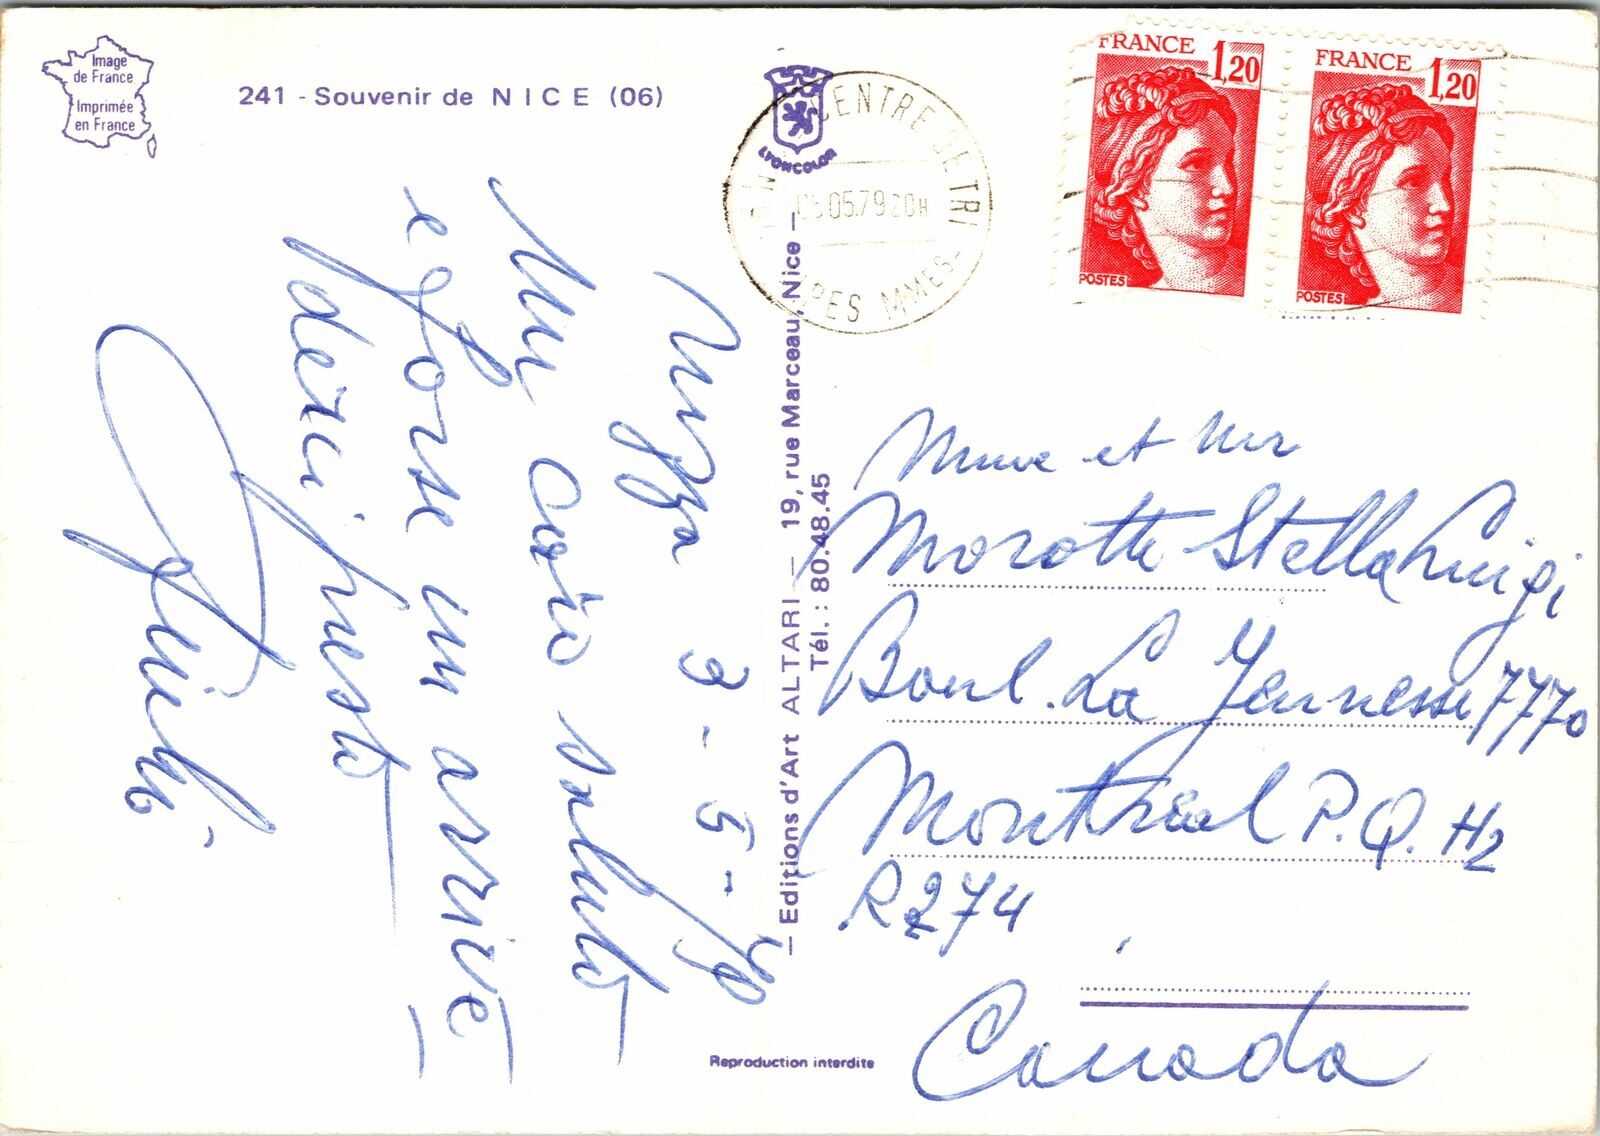 Image
de France
Imprimée
en France
241 - Souvenir de NICE (06)
LYONCOLOR
CENTRE DE TRI
05.79 20H
PES MMES-
FRANCE 1,20
POSTES
FRANCE 1,20
POSTES
Nizza 3-5-79
Un caro saluto
e forse un arrive
derci presto
— Editions d'Art ALTARI — 19, rue Marceau, Nice —
Tél. : 80.48.45
Mme et Mr
Morotte Stella Luigi
Boul. La Jeunesse 7770
Montreal P.Q. H2
R274
Canada
Reproduction interdite